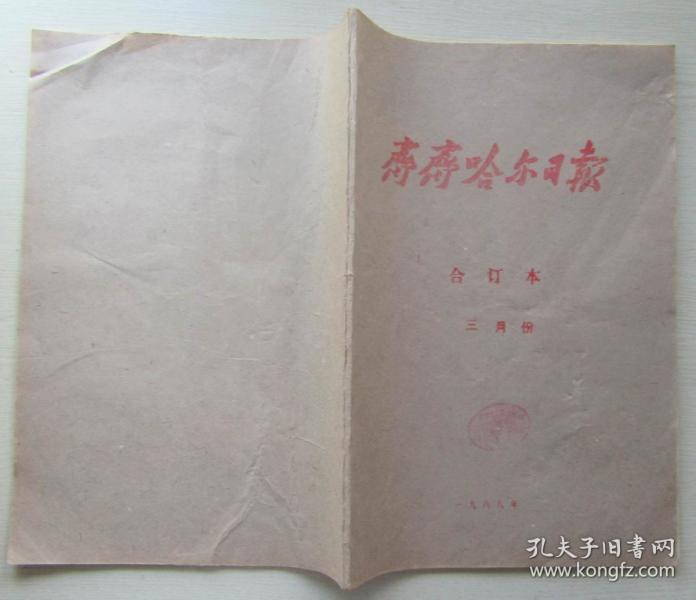 齊齊哈尔日報
合订本
三月份
一九八八年
孔夫子旧书网
www.kongfz.com